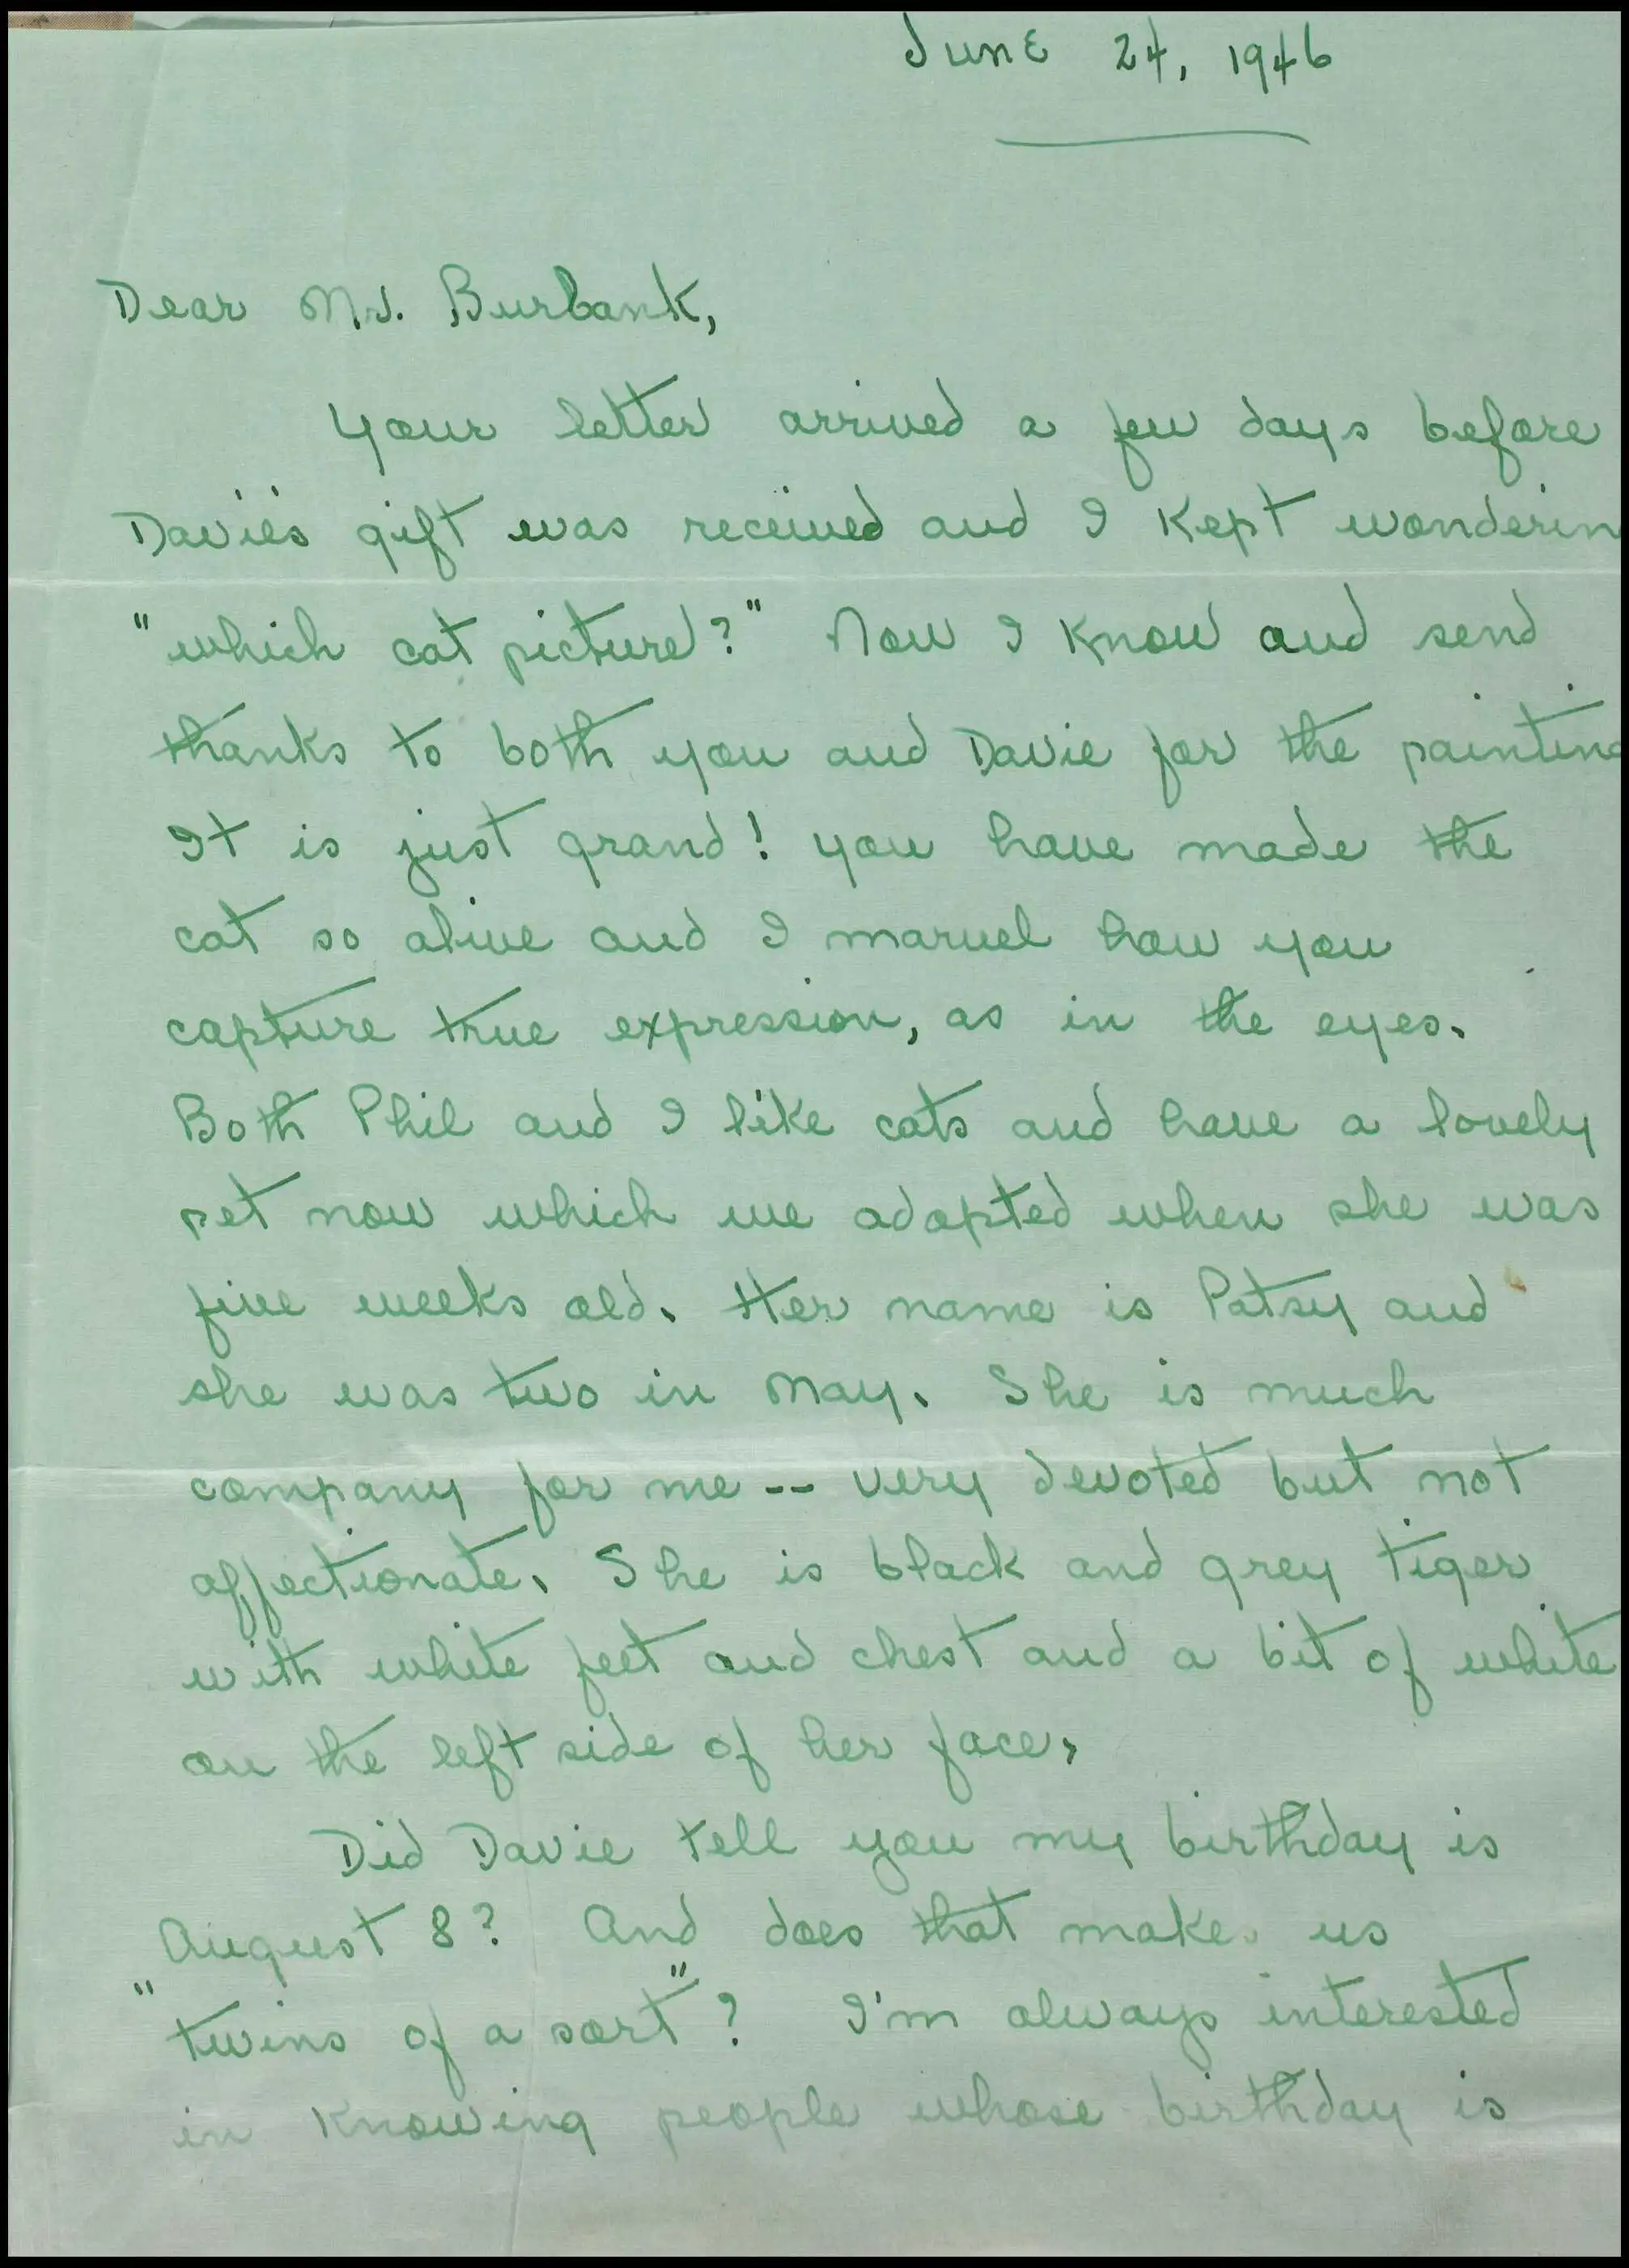 June 24, 1946
Dear Mr. Burbank,
Your letter arrived a few days before
Davie's gift was received and I kept wonderin
"which cat picture?" Now I know and send
thanks to both you and Davie for the painting
It is just grand! You have made the
cat so alive and I marvel how you
capture true expression, as in the eyes.
Both Phil and I like cats and have a lovely
pet now which we adopted when she was
five weeks old. Her name is Patsy and
she was two in May. She is much
company for me -- very devoted but not
affectionate. She is black and grey tiger
with white feet and chest and a bit of white
on the left side of her face.
Did Davie tell you my birthday is
August 8? And does that make us
"twins of a sort"? I'm always interested
in knowing people whose birthday is